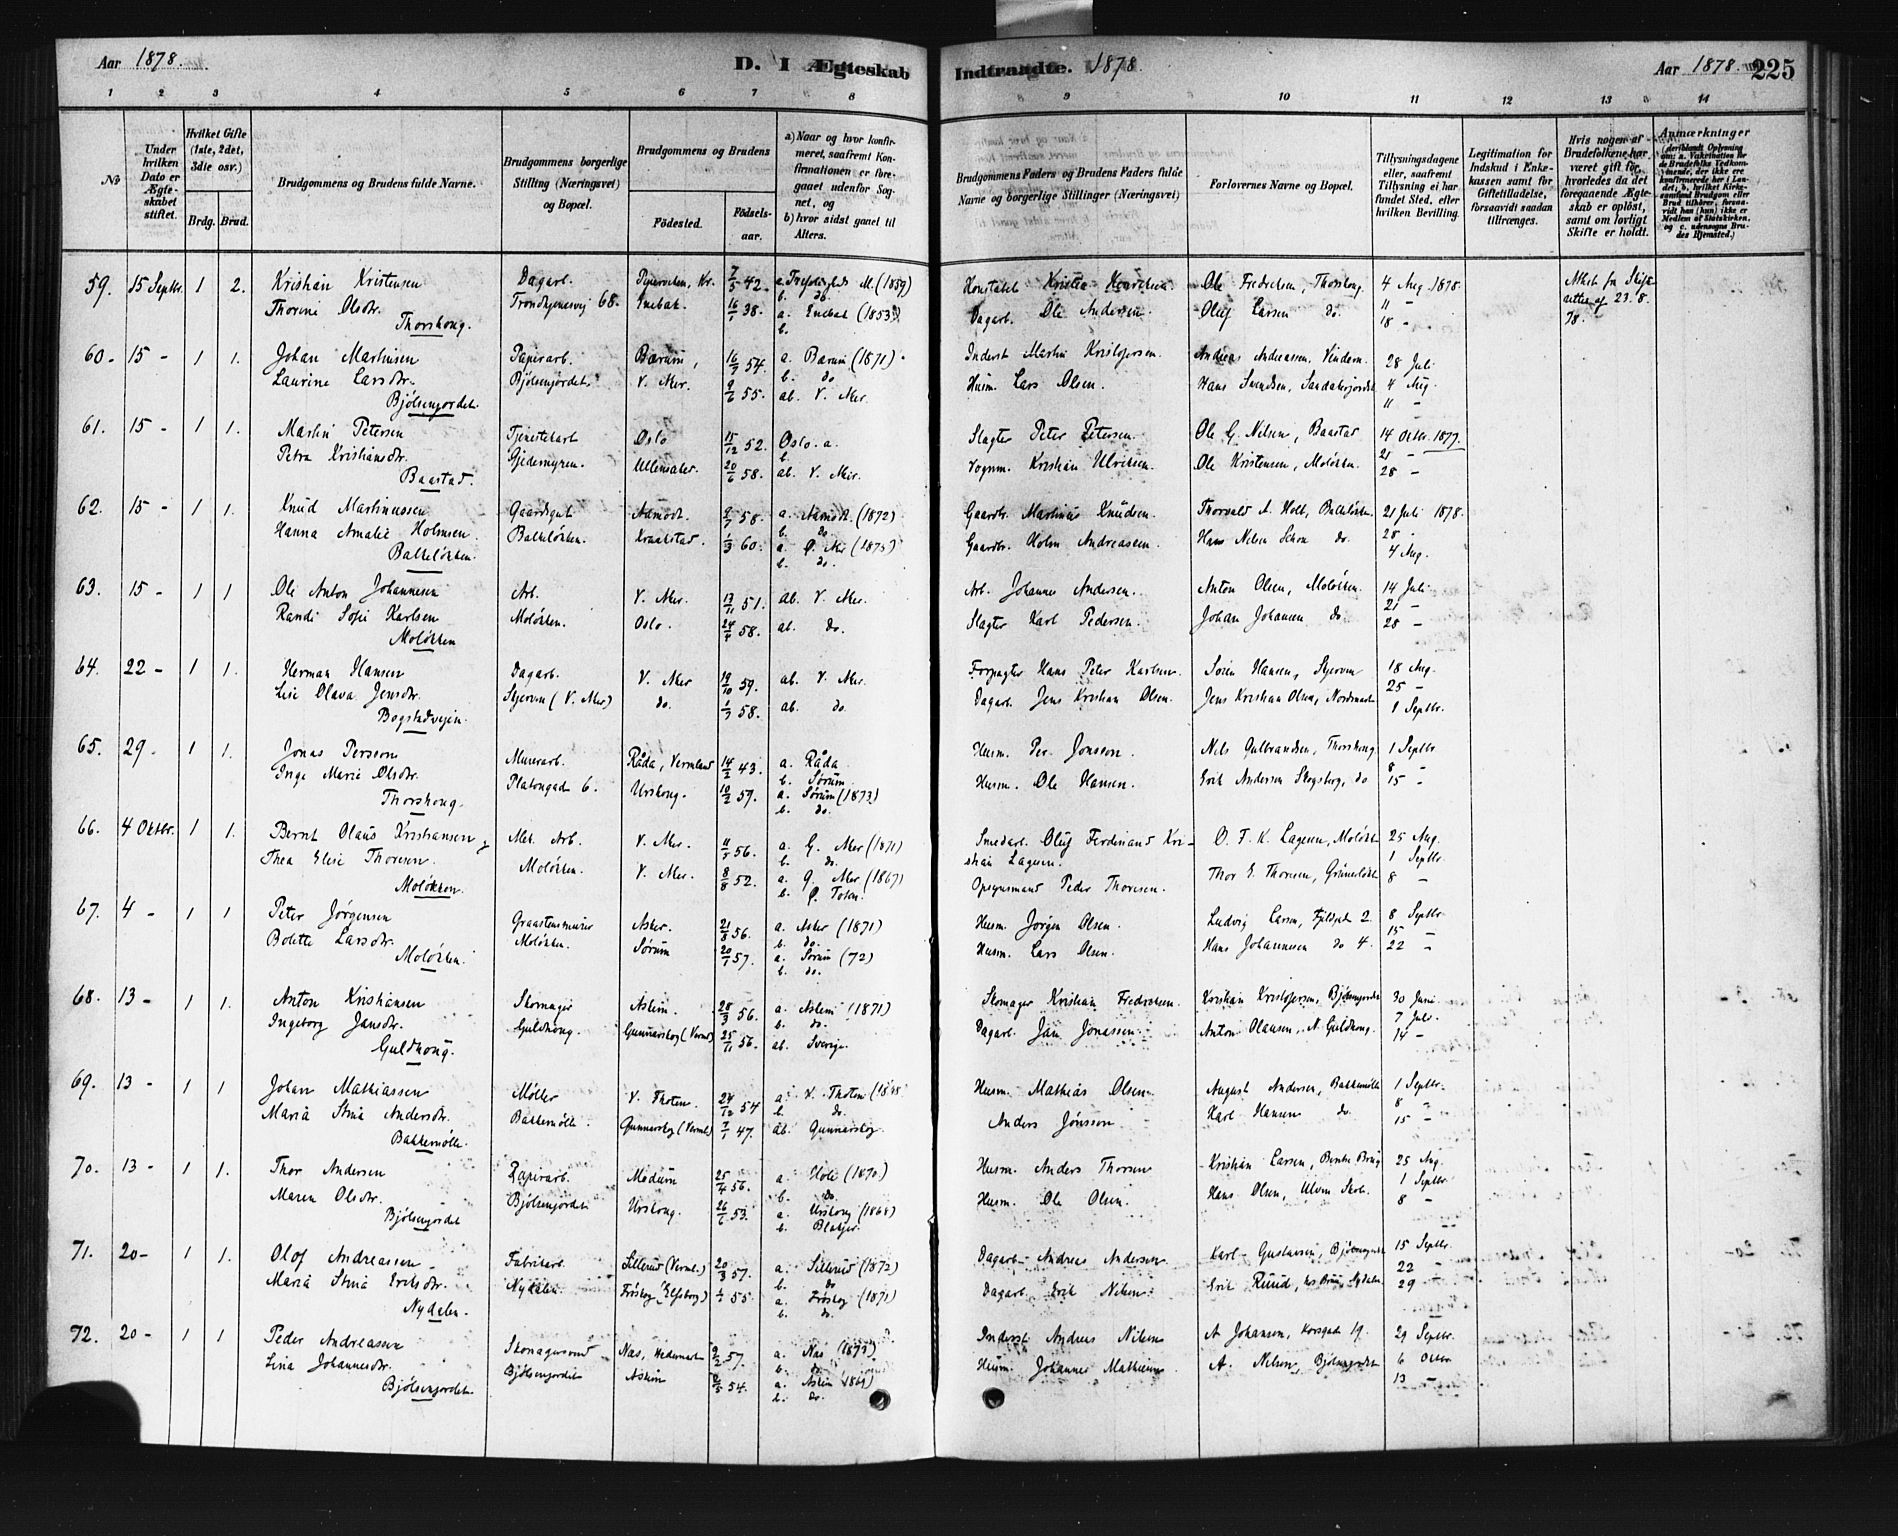 Aar 1878.
D. I Ægteskab
Indtraadte. 1878.
Aar 1878. 225
1 2 3 4 5 6 7 8
9 10 11 12 13 14
No
Under hvilken Dato er Ægteskabet stiftet.
Hvilket Gifte (1ste, 2det, 3die osv.)
Brdg. Brud.
Brudgommens og Brudens fulde Navne.
Brudgommens borgerlige Stilling (Næringsvei) og Bopæl.
Brudgommens og Brudens
Fødested.
Fødselsaar.
a) Naar og hvor konfirmeret, saafremt Konfirmationen er foregaaet udenfor Sognet, og
b) hvor sidst gaaet til Alters.
Brudgommens Faders og Brudens Faders fulde Navne og borgerlige Stillinger (Næringsvei)
Forlovernes Navne og Bopæl.
Tillysningsdagene eller, saafremt Tillysning ei har fundet Sted, efter hvilken Bevilling.
Legitimation for Indskud i Enkekassen samt for Giftetilladelse, forsaavidt saadan tiltrænges.
Hvis nogen af Brudefolkene har været gift før, hvorledes da det foregaaende Ægteskab er opløst, samt om lovligt Skifte er holdt.
Anmærkninger
59. 15 Septbr. 1 2. Kristian Kristensen Dagarb. 7/5 42. (1859) Ole Fredriksen, Thorshaug 4 Aug 1878.
Thorine Olsdtr. Trondhjemsvej 68. Enebak. 16/1 38. a. Enebak (1853) Dagarb. Ole Andersen. Oluf Larsen do. 11 "
Thorshaug. b. 18 "
60. 15 - 1 1. Johan Martinsen Papirarb. Bærum, 16/7 54. a. Bærum (1871) Inderst Martin Kristofersen. Andreas Andreassen, Vindern. 28 Juli
Laurine Larsdtr. Bjølsenjordet. V. Aker. 9/6 55. ab. V. Aker. Husm. Lars Olsen. Hans Svendsen, Sandakerjordet 4 Aug.
Bjølsenjordet. 11 "
61. 15 - 1 1. Martin Petersen Tjenestekarl Oslo 15/12 52. Oslo. a. Slagter Peter Petersen. Ole G. Nilsen, Baastad 14 Oktbr. 1877.
Petra Kristiansdtr. Gjedemyren. Ullensaker. 20/6 58. ab. V. Aker. Vognm. Kristian Ulriksen. Ole Kristensen, Moløkken. 21 "
Baastad. 28 "
62. 15 - 1 1. Knud Martinussen Gaardsgut 58. a. (1872) Gaardbr. Martinus Knudsen. Thorvald A. Holt, Balkeløkken. 21 Juli 1878.
Hanna Amalie Holmsen. Balkeløkken. Kraakstad. 1/3 60. a. Ø. Aker (1875) Gaardbr. Holm Andreasen. Hans Nilsen Schou do. 28 "
Balkeløkken. b. do. 4 Aug.
63. 15 - 1 1 Ole Anton Johannesen Arb. V. Aker. 13/11 51. Ab. V. Aker. Arb. Johannes Andersen. Anton Olsen, Moløkken. 14 Juli
Randi Sofie Karlsen Moløkken. Oslo. 58. ab. do. Slagter Karl Pedersen. Johan Johansen do 21 "
Moløkken 28 "
64. 22 - 1 1. Herman Hansen Dagarb. V. Aker 19/10 59. ab. V. Aker. Forpagter Hans Peter Karlsen. Soren Hansen, Skjerven 18 Aug.
Lise Olava Jensdtr. Skjerven (V. Aker) do. 1/3 58. ab. do. Dagarb. Jens Kristian Olsen. Jens Kristian Olsen, Nordmark 25 "
Bogstadvejen. 1 Septbr.
65. 29 - 1 1. Jonas Persson Murerarb. Råda, Vermland 14/2 43. a. Råda Husm. Per Jonsson. Nils Gulbrandsen, Thorshaug 1 Septbr.
Inge Marie Olsdtr. Platougade 6. Urskoug. 10/2 59. b. Sørum. a. Sørum (1873) Husm. Ole Hansen. Erik Andersen Skogsborg, do 8 "
Thorshaug. b. do. 15 "
66. 4 Oktbr. 1 1. Bernt Olaus Kristiansen Mek. Arb. V. Aker. 11/5 56. a. G. Aker (1871) Smedarb. Oluf Ferdinand Kri- O. F. K. Lagesen, Moløkk 25 Aug.
Thea Elise Thoresen. Moløkken. V. Aker. 8/8 52. a. G. Aker (1867) stian Lagesen. Thor E. Thoresen, Grünerløkk 1 Septbr.
Moløkken. b. Ø. Toten. Opsynsmand Peder Thoresen. 8 "
67. 4 - 1 1 Peter Jørgensen Graastensmurer Asker. 21/8 56. a. Asker (1871) Husm. Jørgen Olsen. Ludvig Larsen, Fjeldgade 2. 8 Septbr.
Bolette Larsdtr. Moløkken. Sørum 20/1 57. a. Sørum (72) Husm. Lars Olsen. Hans Johannesen do 4. 15 "
Moløkken. b. do. 22 "
68. 13 - 1 1. Anton Kristiansen Skomager Askim. 28/3 56. a. Askim (1871) Skomager Kristian Fredriksen. Kristian Kristofersen, Bjølsenjordet 30 Juni
Ingeborg Jansdtr. Guldhaug. Gunnarskog (Verml) 25/11 56. ab. Sverige. Dagarb. Jan Jonassen. Anton Olausen, N. Guldhaug. 7 Juli
Guldhaug. 14 "
69. 13 - 1 1 Johan Mathiassen Møller V. Thoten. 24/12 54 a. V. Thoten Husm. Mathias Olsen August Andersen, Bakkemølle 1 Septbr.
Maria Stina Andersdtr. Bakkemølle. Gunnarskog (Verml) 7/1 47. ab. Gunnarskog Anders Jonsson Karl Hansen do. 8 "
Bakkemølle. 15 "
70. 13 - 1 1. Thor Andersen Papirarb. Modum 25/4 56. a. Hole (1870) Husm. Anders Thorsen Kristian Larsen, Bentse Brug 25 Aug.
Maren Olsdtr. Bjølsenjordet Urskoug. 26/6 53. a. Urskoug (1868) Husm. Ole Olsen. Hans Olsen, Ulven Skole. 1 Septbr.
Bjølsenjordet b. Blakjer. 8 "
71. 20 - 1 1. Olof Andreassen Fabrikarb. Sillerud (Verml.) 20/3 57. a. Sillerud (1872) Dagarb. Andreas Andersen Karl Gustavsen, Bjølsenjordet 15 Septbr.
Maria Stina Eriksdtr. Nydalen. Fröskog (Elfsborg) 55. a. Fröskog (1871) Dagarb. Erik Nilsen Erik Ruud, Nydalen. 22 "
Nydalen. b. do. 29 "
72. 20 - 1 1 Peder Andreassen Skomagersvend Næs, Hedemark 9/2 57. a. Næs (1873) Inderst Andreas Nilsen A Johansen, Korsgade 19. 29 Septbr.
Lina Johannesdtr. Bjølsenjordet Askim 54. a. Askim (1869) Husm. Johannes Mathiesen A. Nilsen, Bjølsenjordet 6 Oktbr.
Bjølsenjordet b. do. 13 "